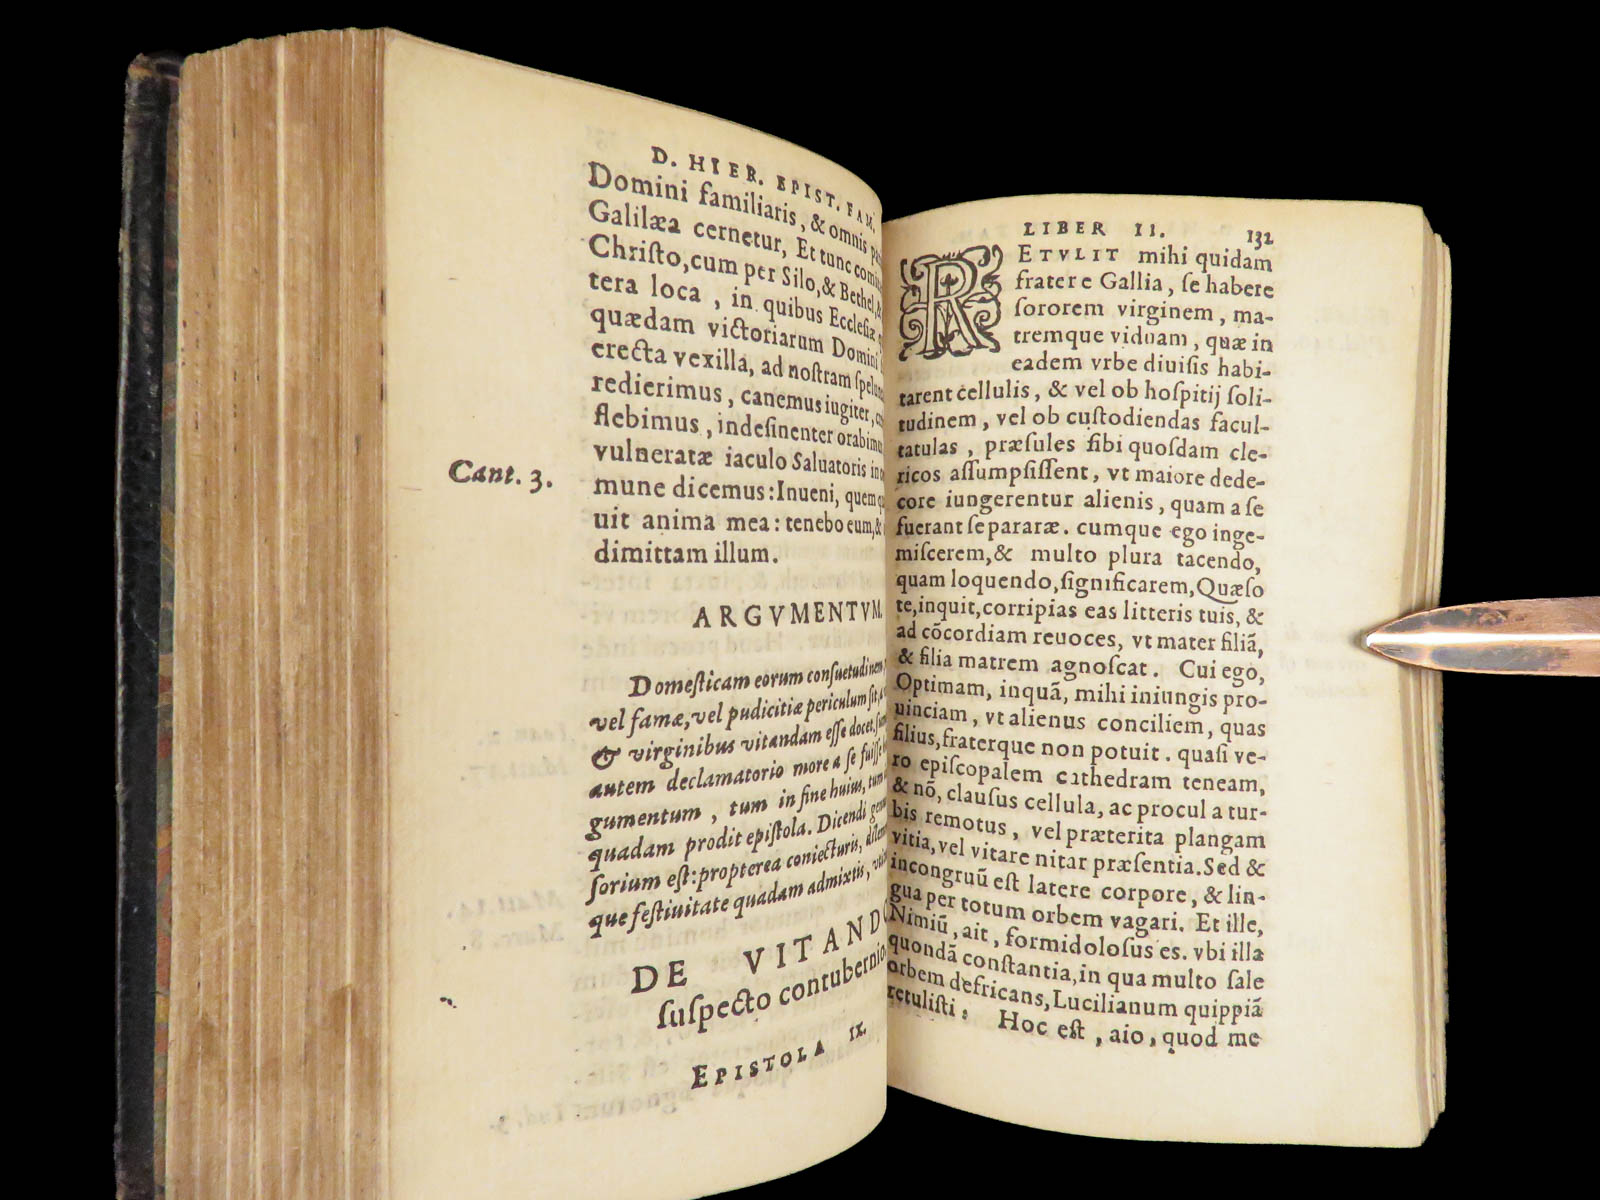 D. HIER. EPIST. FAM.
Domini familiaris, & omnis
Galilæa cernetur, Et tunc
Chriſto, cum per Silo, & Bethel,
tera loca , in quibus Eccleſiæ,
quædam victoriarum Domini
erecta vexilla, ad noſtram
redierimus , canemus iugiter,
flebimus , indeſinenter
vulneratæ iaculo Saluatoris
Cant. 3.
mune dicemus: Inueni, quem
uit anima mea: tenebo eum, &
dimittam illum.
ARGVMENTVM.
Domeſticam eorum conſuetudinem
vel famæ, vel pudicitiæ periculum ſit,
& virginibus vitandam eſſe docet,
autem declamatorio more a ſe fuiſſe
gumentum , tum in fine huius, tum
quadam prodit epiſtola. Dicendi
ſorium eſt: propterea coniecturis,
que feſtiuitate quadam admixtis,
DE VITANDO
ſuſpecto contubernio.
EPISTOLA IX.
LIBER II. 132
RETVLIT mihi quidam
frater e Gallia, ſe habere
ſororem virginem, ma-
tremque viduam, quæ in
eadem vrbe diuiſis habi-
tarent cellulis, & vel ob hoſpitij ſoli-
tudinem, vel ob cuſtodiendas facul-
tatulas , præſules ſibi quoſdam cle-
ricos aſſumpſiſſent, vt maiore dede-
core iungerentur alienis, quam a ſe
fuerant ſeparatæ. cumque ego inge-
miſcerem, & multo plura tacendo,
quam loquendo, ſignificarem, Quæſo
te, inquit, corripias eas litteris tuis, &
ad cōcordiam reuoces, vt mater filiā,
& filia matrem agnoſcat. Cui ego,
Optimam, inquā, mihi iniungis pro-
uinciam, vt alienus conciliem, quas
filius, fraterque non potuit. quaſi ve-
ro epiſcopalem cathedram teneam,
& nō, clauſus cellula, ac procul a tur-
bis remotus, vel præterita plangam
vitia, vel vitare nitar præſentia. Sed &
incongruū eſt latere corpore, & lin-
gua per totum orbem vagari. Et ille,
Nimiū, ait, formidoloſus es. vbi illa
quondā conſtantia, in qua multo ſale
orbem defricans, Lucilianum quippiā
retuliſti? Hoc eſt, aio, quod me